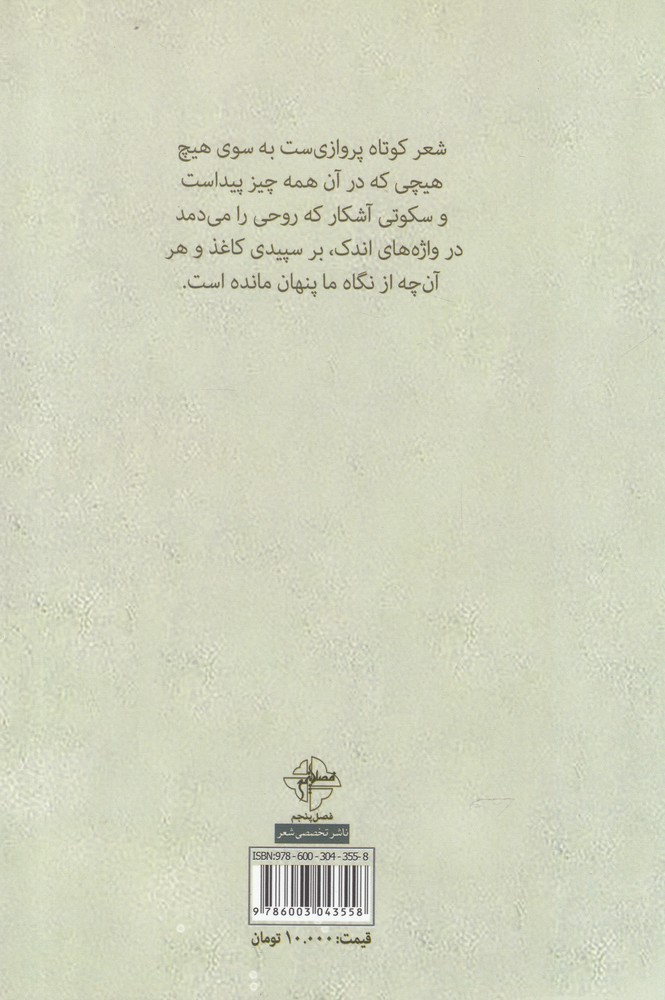 شعر کوتاه پروازی‌ست به سوی هیچ
هیچی که در آن همه چیز پیداست
و سکوتی آشکار که روحی را می‌دمد
در واژه‌های اندک، بر سپیدی کاغذ و هر
آن‌چه از نگاه ما پنهان مانده است.
فصل پنجم
ناشر تخصصی شعر
ISBN:978-600-304-355-8
9 786003 043558
قیمت: ۱۰.۰۰۰ تومان